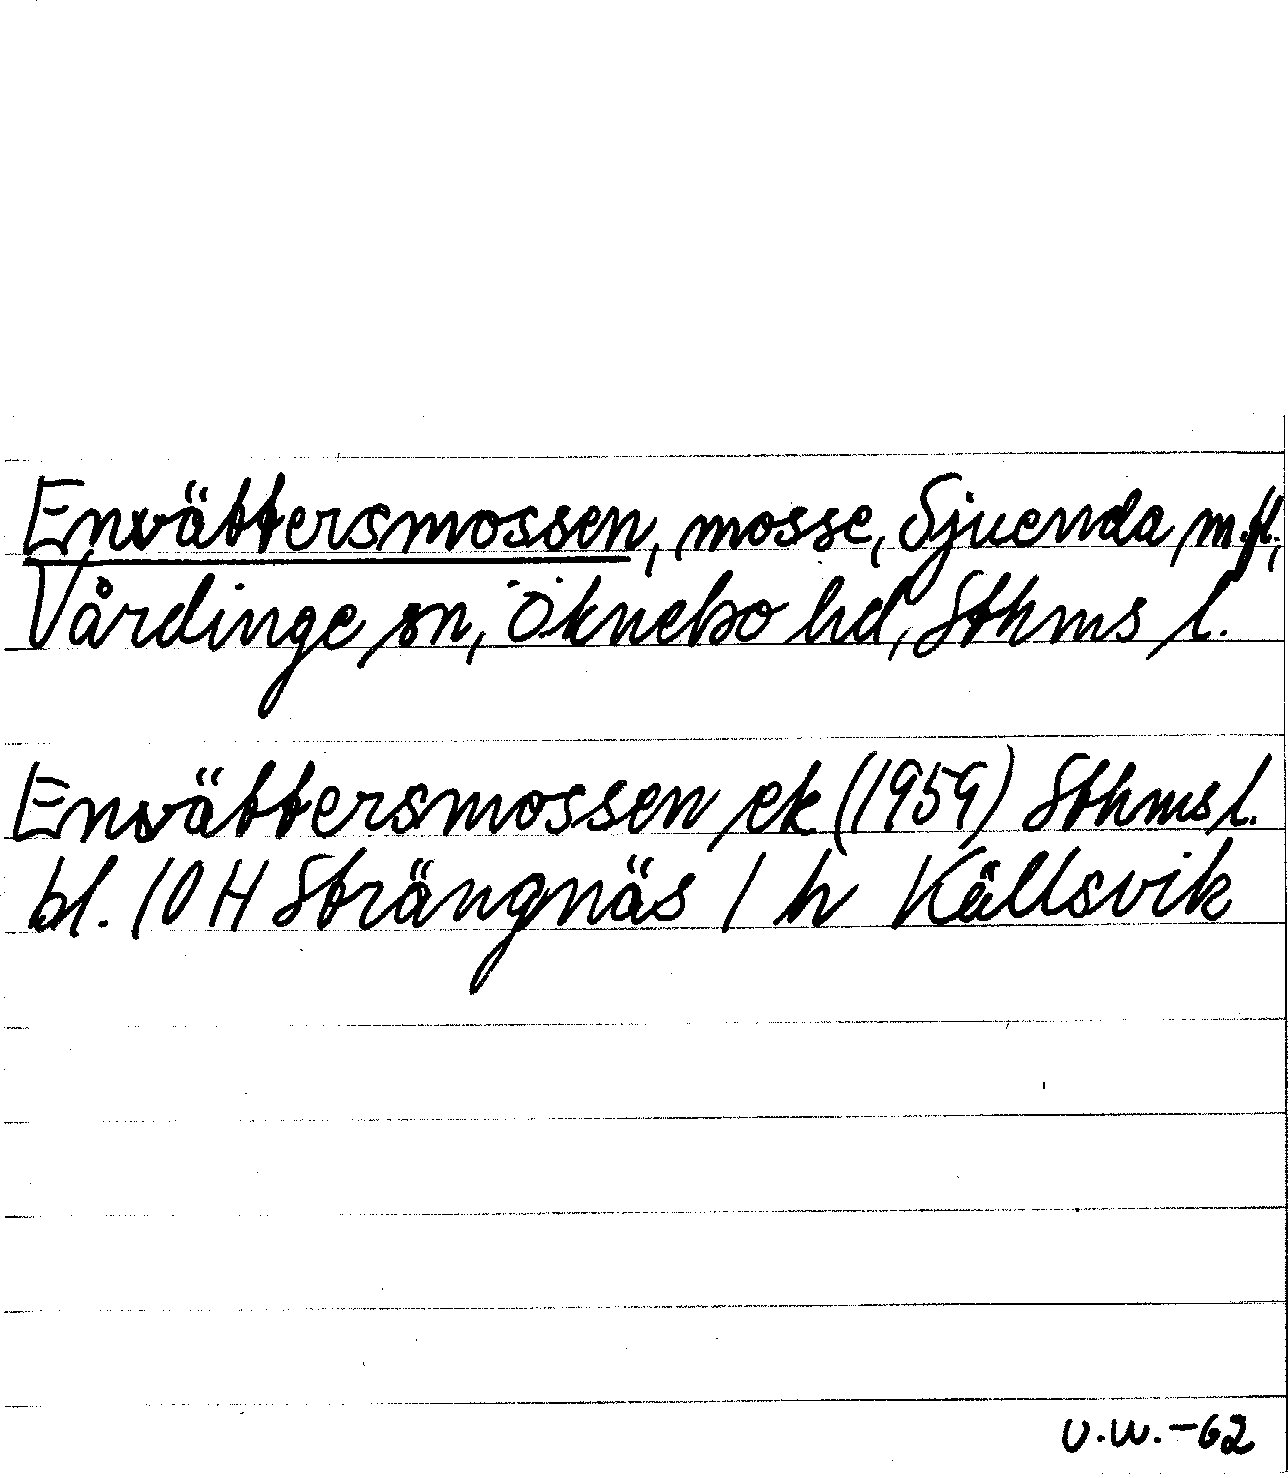 Envättersmossen, mosse, Sjuenda m.fl.,
Vårdinge sn, Öknebo hd, Sthms l.
Envättersmossen ek (1959) Sthms l.
bl. 10 H Strängnäs 1 h Källsvik
U.W.-62